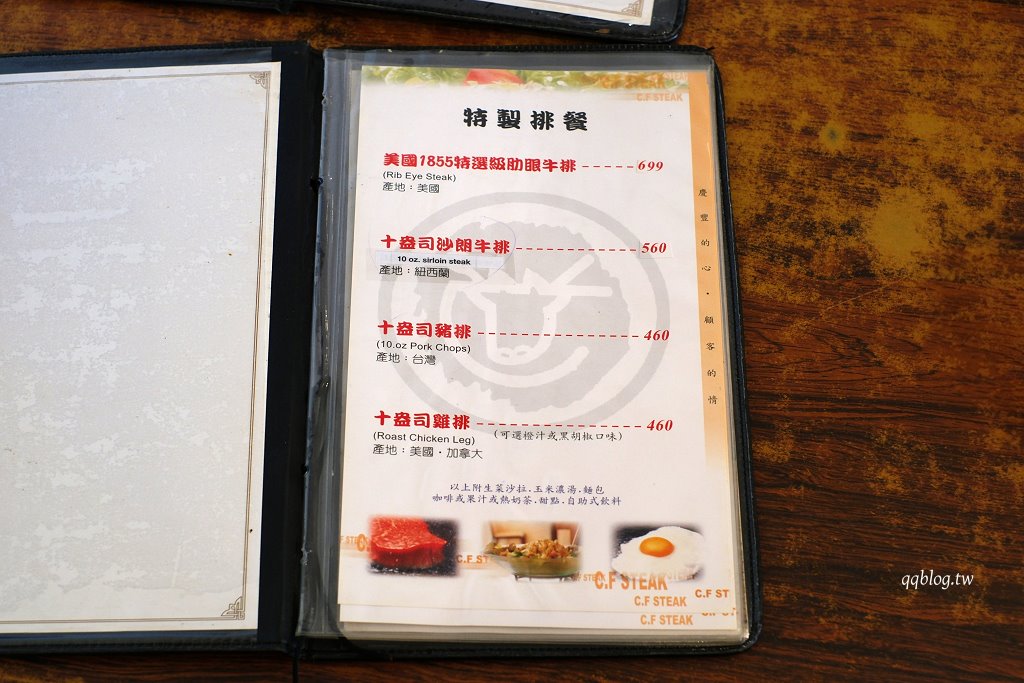 C.F STEAK
C.F STEAK
特製排餐
美國1855特選級肋眼牛排-----699
(Rib Eye Steak)
產地：美國
十盎司沙朗牛排--------------560
10 oz. sirloin steak
產地：紐西蘭
十盎司豬排------------------460
(10.oz Pork Chops)
產地：台灣
十盎司雞排------------------460
(Roast Chicken Leg) (可選橙汁或黑胡椒口味)
產地：美國·加拿大
以上附生菜沙拉.玉米濃湯.麵包
咖啡或果汁或熱奶茶.甜點.自助式飲料
慶豐的心·顧客的情
C.F ST
C.F STEAK
C.F ST
C.F STEAK
C.F STEAK
qqblog.tw